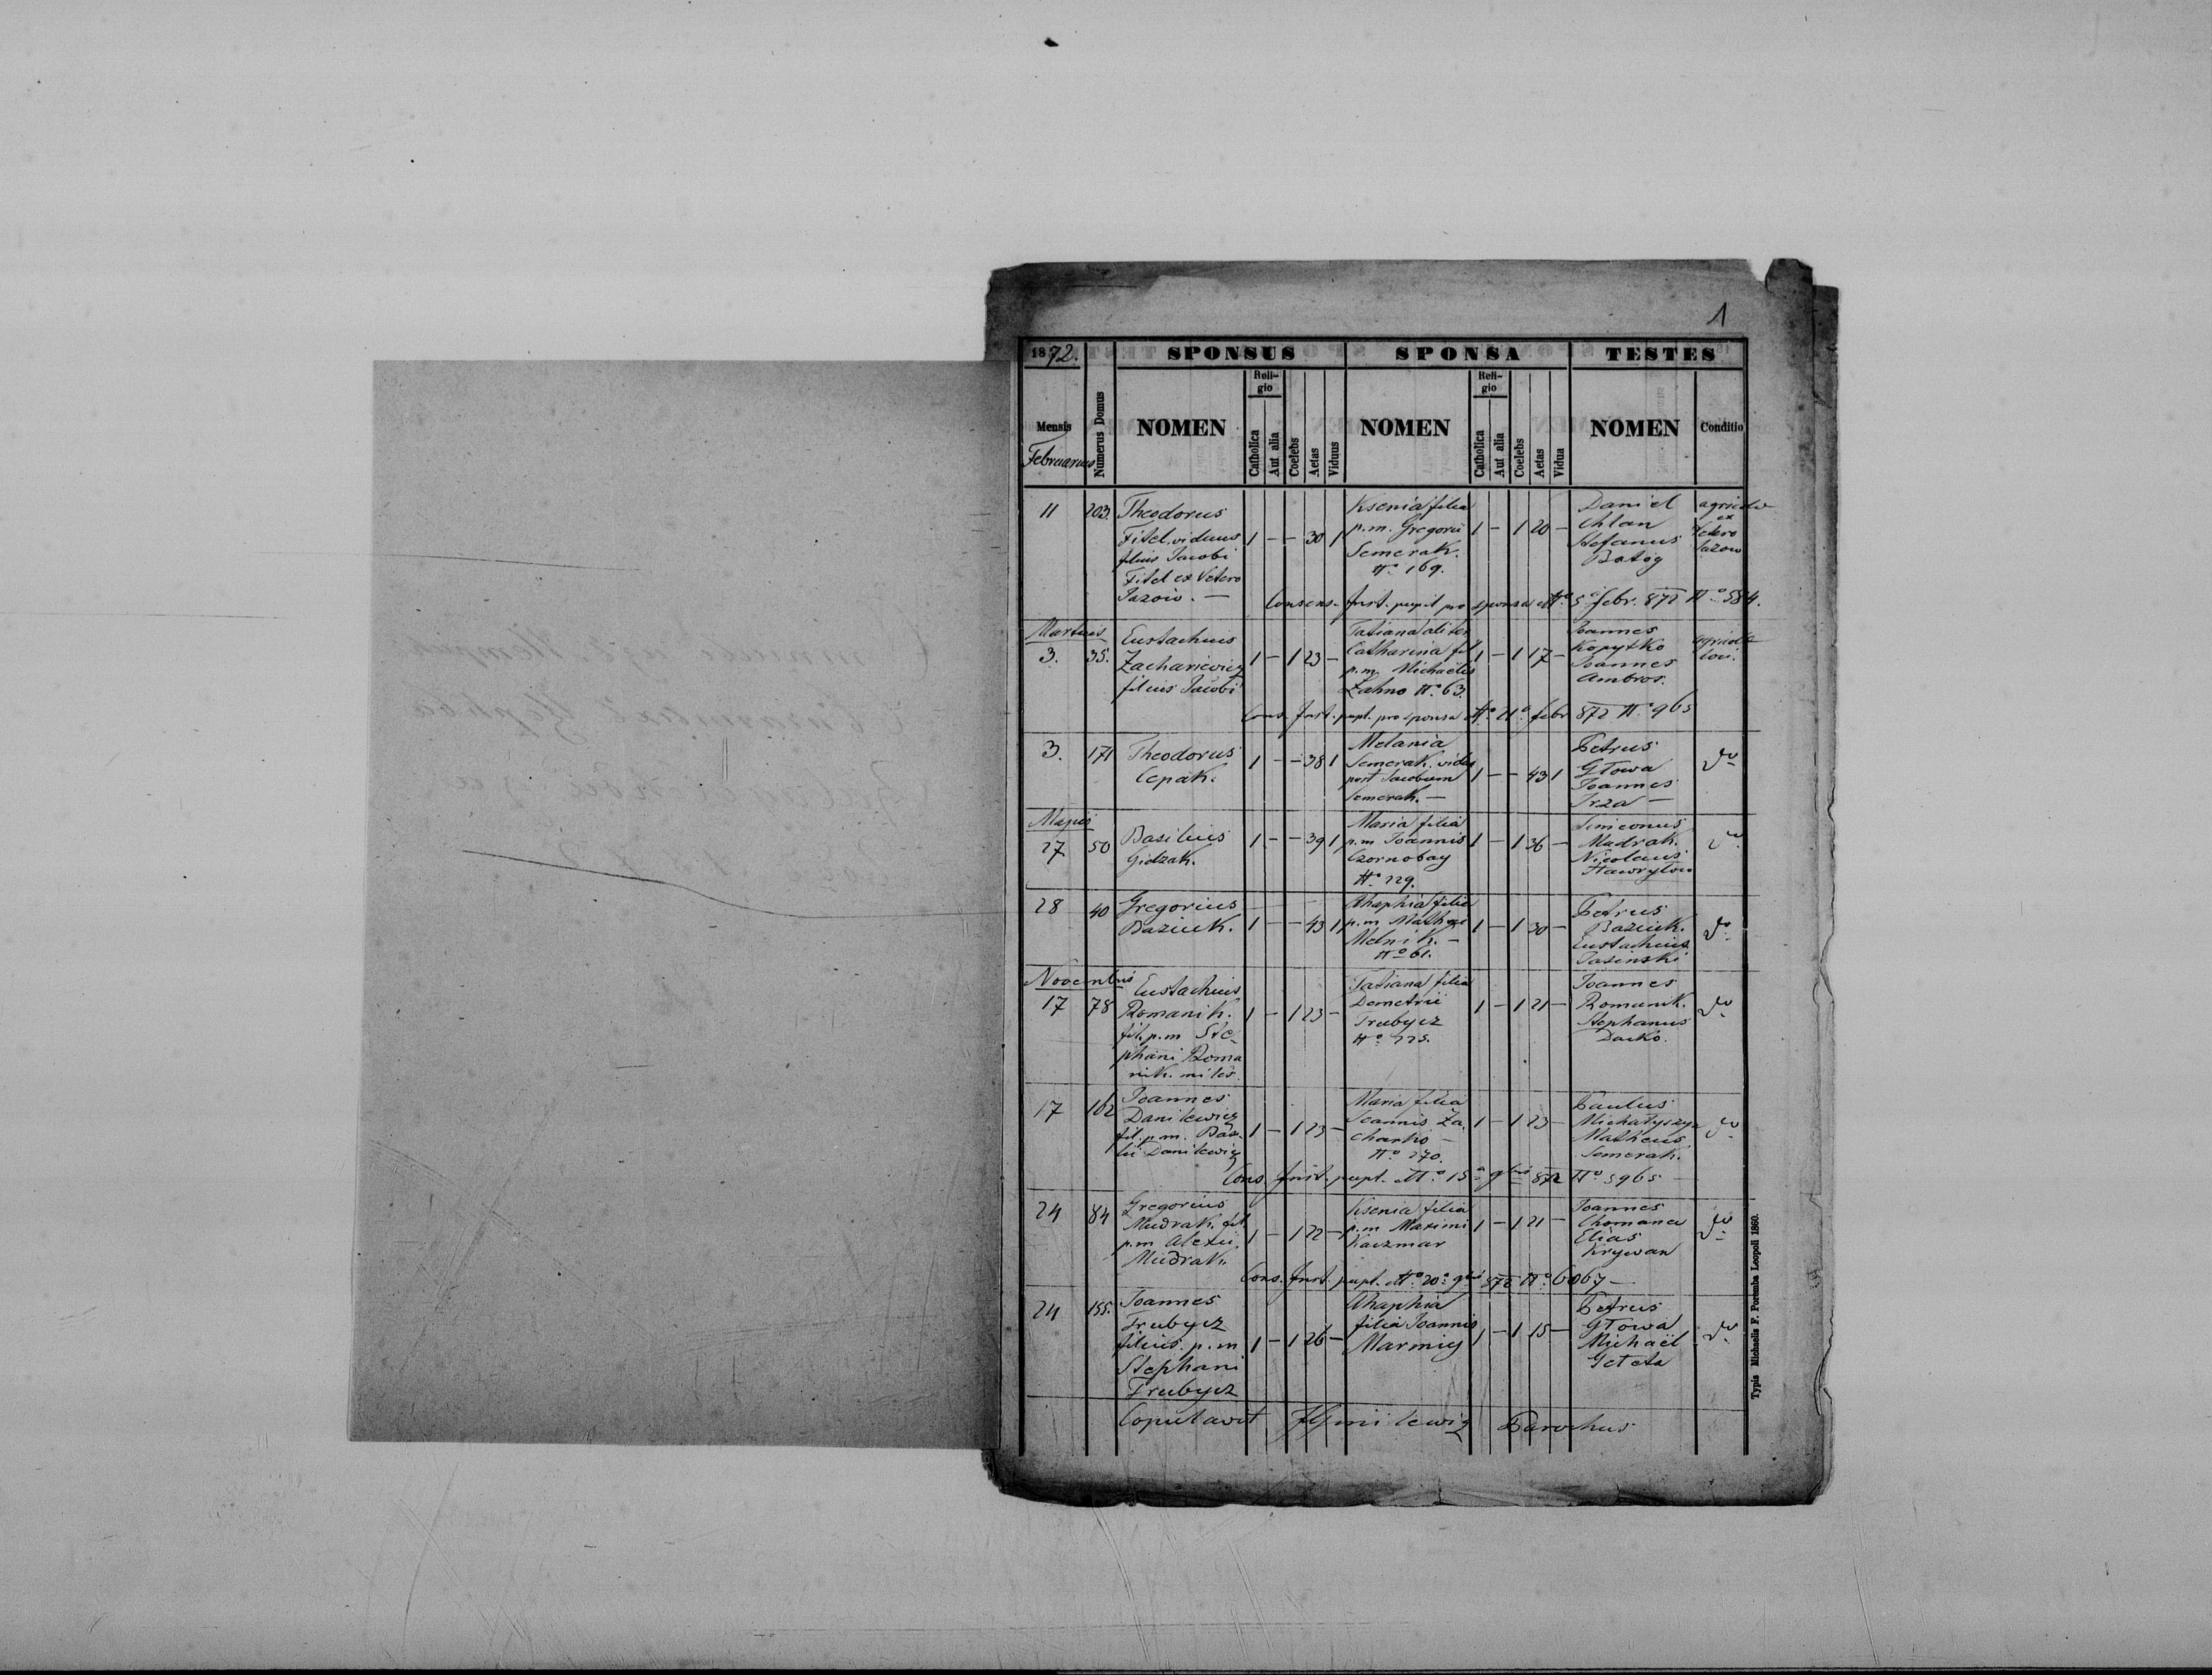 1
1872. SPONSUS SPONSA TESTES
Mensis
Februarius
Numerus Domus
NOMEN
Religio
Catholica
Aut alia
Coelebs
Aetas
Viduus
NOMEN
Religio
Catholica
Aut alia
Coelebs
Aetas
Vidua
NOMEN
Conditio
11 203.
Theodorus
Fitel. viduus
filius Jacobi
Fitel ex Vetero
Jazow. —
1 — — 30 1
Ksenia filia
p.m. Gregorii
Semerak.
No 169.
1 — 1 20 —
Daniel
Chlan
Stefanus
Batog
agricolae
ex
Vetero
Jazow
Consens. Inst. pupil pro sponsa dto 5 febr. 872 No 584.
Martius
3. 35.
Eustachius
Zachariewicz
filius Jacobi
1 — 1 23 —
Tatiana aliter
Catharina fil
p.m. Michaelis
Zahno No 63.
1 — 1 17 —
Joannes
Kopytko
Joannes
Ambros.
agricolae
loci.
Cons. Inst. pupl. pro sponsa dto 21o febr 872 No 965
3. 171
Theodorus
Cepak.
1 — — 38 1
Melania
Semerak. vidua
post Jacobum
Semerak. —
1 — — 43 1
Petrus
Głowa
Joannes
Irza —
do
Majus
27 50
Basilius
Gidzak.
1 — — 39 1
Maria filia
p.m Joannis
Czornobay
No 229.
1 — 1 36 —
Simeonus
Mudrak.
Nicolaus
Hawrylow
do
28 40
Gregorius
Baziuk.
1 — — 43 1
Ahaphia filia
p.m Mathei
Melnik. —
No 61.
1 — 1 30 —
Petrus
Baziuk.
Eustachius
Jasinski
do
Novembris
17 78
Eustachius
Romanik.
fil. p.m Ste-
phani Roma
nik. miles.
1 — 1 23 —
Tatiana filia
Demetrii
Trubycz
No 225.
1 — 1 21 —
Joannes
Romanik.
Stephanus
Dacko.
do
17 162
Joannes
Danilewicz
fil. p.m. Basi-
lii Danilewicz
1 — 1 23 —
Maria filia
Joannis Za.
charko —
No 270.
1 — 1 23 —
Paulus
Michałyszyn
Matheus
Semerak.
do
Cons. Inst. pupl. dto 15a 9bris 872 No 5965 —
24 84
Gregorius
Mudrak. fil
p.m Alexii
Mudrak.
1 — 1 22 —
Ksenia filia
p.m Maximi
Kaczmar
1 — 1 21 —
Joannes
Chomanca
Elias
Krywan
do
Cons. Inst. pupl. dto 20a 9bris 872 No 6067 —
24 155.
Joannes
Trubycz
filius p.m
Stephani
Trubycz
1 — 1 26 —
Ahaphia
filia Joannis
Marmig
1 — 1 15 —
Petrus
Głowa
Michaël
Geleta
do
Copulavit Parochus
Typis Michaelis F. Poremba Leopoli 1860.